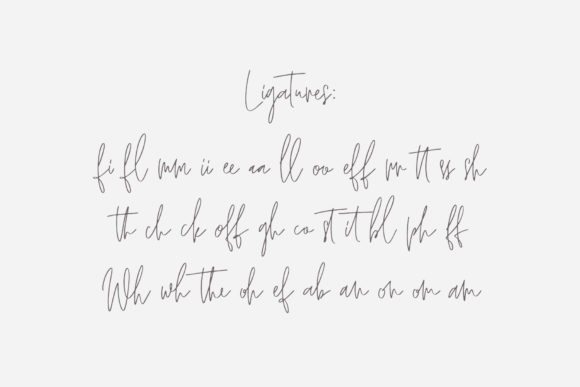 Ligatures:
fi fl mm ii ee aa ll oo eff rr tt ss sh
th ch ck off gh co st it bl ph ff
Wh wh the oh ef ab an on om am